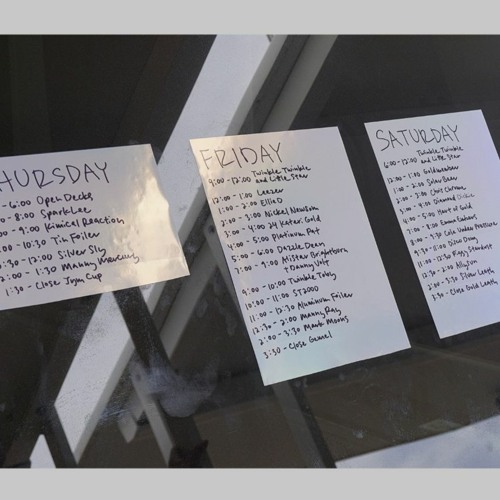 HURSDAY
- 6:00 Open Decks
- 8:00 Sparklee
- 9:00 Kimical Reaction
:00 - 10:30 Tin Foiler
:30 - 12:30 Silver Sly
2:00 - 1:30 Manny Mercury
1:30 - Close Jym Cup
FRIDAY
9:00 - 12:00 Twinkle Twinkle
and Little Star
12:00 - 1:00 Leezer
1:00 - 2:00 Ellis D
2:00 - 3:00 Nickel Newsom
3:00 - 4:00 24 Kater Gold
4:00 - 5:00 Platinum Pat
5:00 - 6:00 Dazzle Dean
7:00 - 9:00 Mister Brightborn
+ Danny Volt
9:00 - 10:00 Twinkle Toby
10:00 - 11:00 ST2000
11:00 - 12:30 Aluminum Foiler
12:30 - 2:00 Manny Ray
2:00 - 3:30 Mark Morris
3:30 - Close Gemel
SATURDAY
6:00 - 12:00 Twinkle Twinkle
and Little Star
12:00 - 1:00 Goldmember
1:00 - 2:00 Solar Bear
2:00 - 3:00 Chris Chrome
3:00 - 4:00 Diamond
4:00 - 5:00 Heart of Gold
7:00 - 8:00
8:00 - 9:30 Cole Under Pressure
9:30 - 11:00 Disco Doug
11:00 - 12:30 Ziggy Stardust
12:30 - 2:00
2:00 - 3:30
3:30 - Close Gold Leath